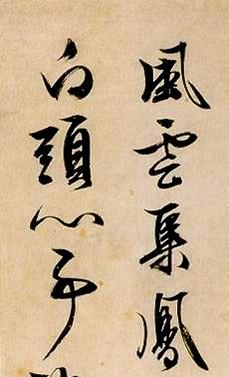 風雲集鳳
白頭心事